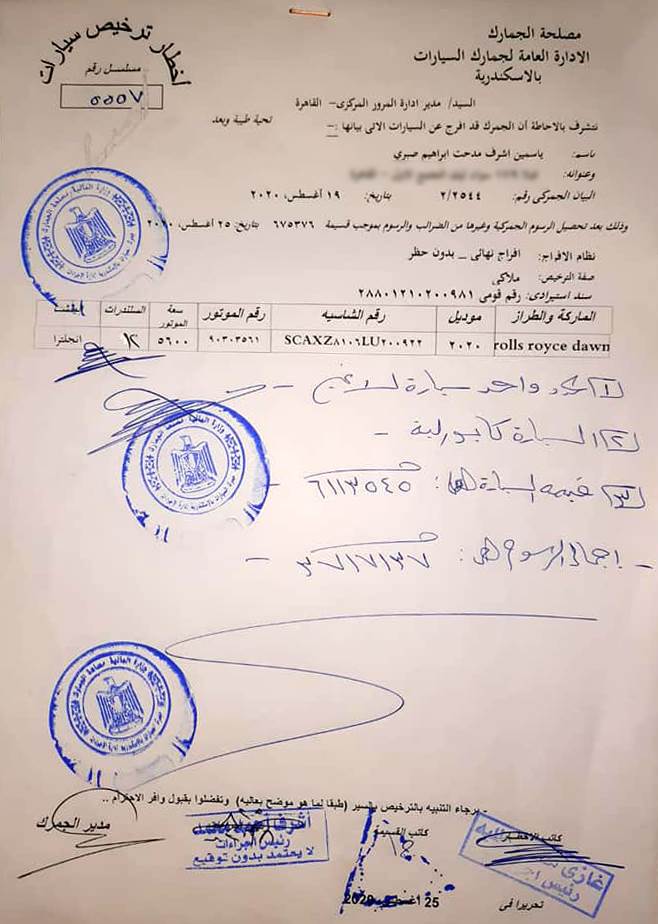 مصلحة الجمارك
الادارة العامة لجمارك السيارات
بالاسكندرية
اخطار ترخيص سيارات
مسلسل رقم
٥٥٥٧
السيد/ مدير ادارة المرور المركزى- القاهرة
تحية طيبة وبعد
نتشرف بالاحاطة أن الجمرك قد افرج عن السيارات الاتى بيانها :-
باسم: ياسمين اشرف مدحت ابراهيم صبري
وعنوانه:
البيان الجمركى رقم: ٢/٢٥٤٤ بتاريخ: ١٩ أغسطس، ٢٠٢٠
وذلك بعد تحصيل الرسوم الجمركية وغيرها من الضرائب والرسوم بموجب قسيمة ٦٧٥٣٧٦ بتاريخ: ٢٥ أغسطس، ٢٠٢٠
نظام الافراج: افراج نهائى _ بدون حظر
صفة الترخيص: ملاكي
سند استيرادى: رقم قومى ٢٨٨٠١٢١٠٢٠٠٩٨١
الماركة والطراز موديل رقم الشاسيه رقم الموتور سعة الموتور السلندرات
rolls royce dawn ٢٠٢٠ SCAXZ٨١٠٦LU٢٠٠٩٢٢ ٩٠٣٠٣٥٦١ ٥٦٠٠ ١٢ انجلترا
١ واحد سيارة لا غير -
٢ السيارة كابورليه -
٣ قيمه السيارة هى: ٦١١٣٥٤٥
- اجمالى الرسوم هى: ٣٧١٧١٣٧ -
- برجاء التنبيه بالترخيص بالسير (طبقا لما هو موضح بعاليه) وتفضلوا بقبول وافر الاحترام ..
كاتب الاخطار
كاتب القسيمة
مدير الجمرك
أشرف
رئيس اجراءات
لا يعتمد بدون توقيع
غازى
رئيس
تحريرا فى 25 أغسطس، 2020